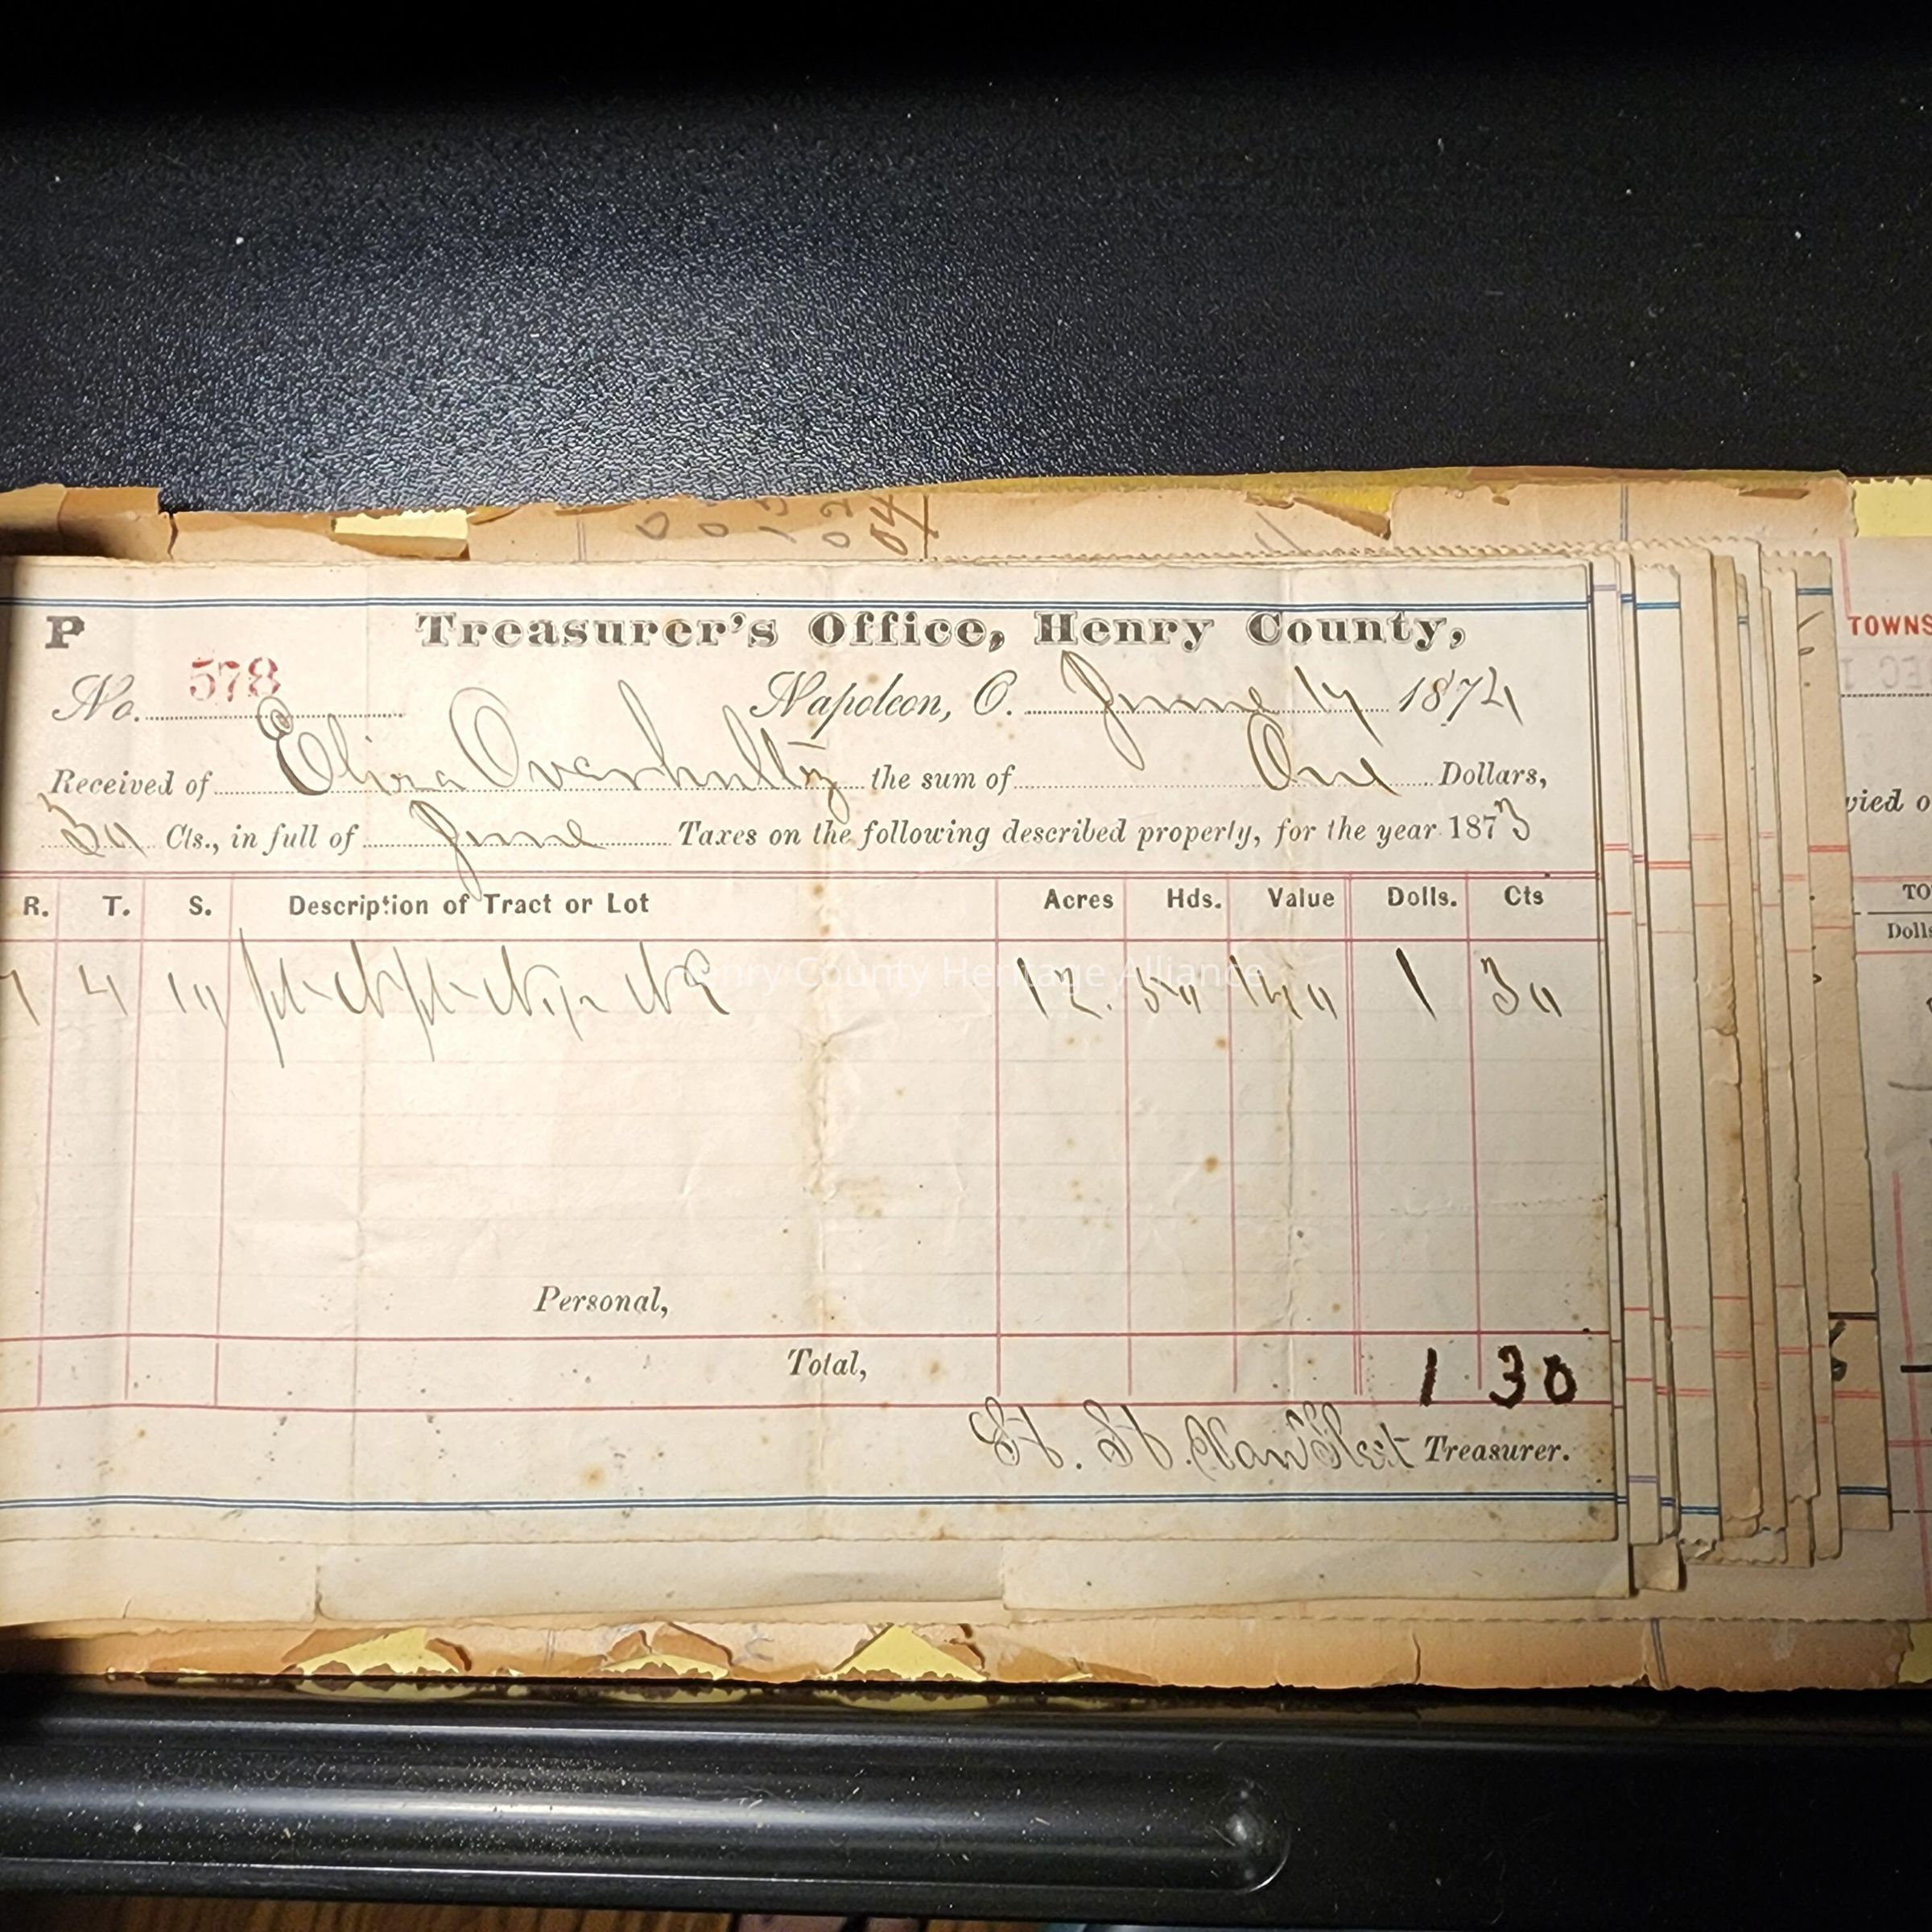 P Treasurer's Office, Henry County,
No. 578 Napoleon, O. June 17 1874
Received of Eliza Overhultz the sum of One Dollars,
30 Cts., in full of June Taxes on the following described property, for the year 1873
R. T. S. Description of Tract or Lot Acres Hds. Value Dolls. Cts
7 4 10 pt N pt NE 12. 50 140 1 30
Henry County Heritage Alliance
Personal,
Total, 1 30
H. H. VanFleet Treasurer.
TOWNS
DEC 1
vied o
TO
Dolls